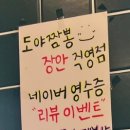 도야짬뽕
장안 직영점
네이버 영수증
"리뷰 이벤트"